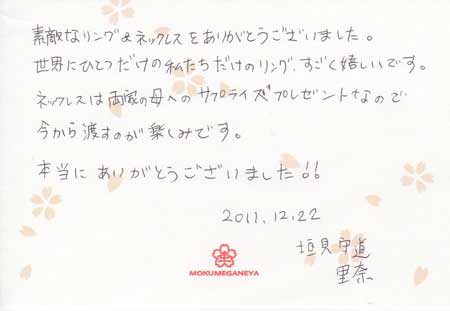 素敵なリング&ネックレスをありがとうございました。
世界にひとつだけの私たちだけのリング、すごく嬉しいです。
ネックレスは両家の母へのサプライズプレゼントなので
今から渡すのが楽しみです。
本当にありがとうございました!!
2011.12.22
垣見守道
里奈
MOKUMEGANEYA